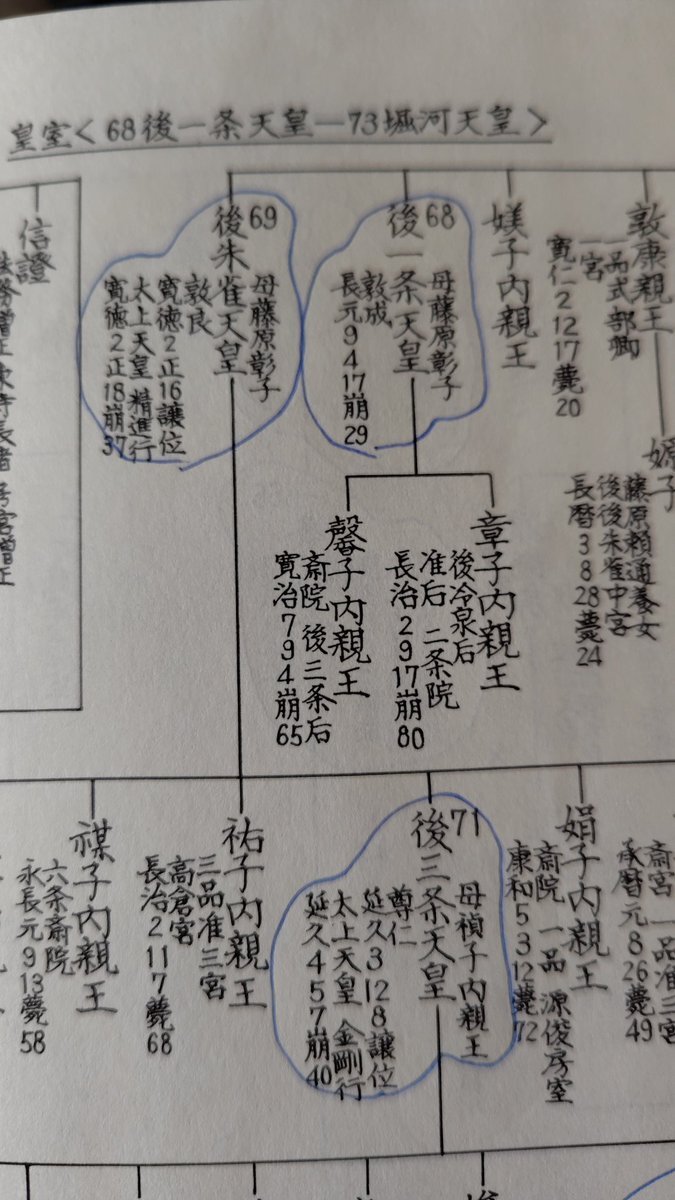 皇室＜68後一条天皇―73堀河天皇＞
敦康親王
一品式部卿
一宮
寛仁2 12 17薨20
嫄子
藤原頼通養女
後後朱雀中宮
長暦3 8 28薨24
媄子内親王
68
後一条天皇
母藤原彰子
敦成
長元9 4 17崩29
69
後朱雀天皇
母藤原彰子
敦良
寛徳2正16譲位
太上天皇 精進行
寛徳2正18崩37
信證
東寺長者
章子内親王
後冷泉后
准后 二条院
長治2 9 17崩80
馨子内親王
斎院 後三条后
寛治7 9 4崩65
斎宮 一品准三宮
承暦元8 26薨49
娟子内親王
斎院 一品 源俊房室
康和5 3 12薨72
71
後三条天皇
母禎子内親王
尊仁
延久3 12 8譲位
太上天皇 金剛行
延久4 5 7崩40
祐子内親王
三品准三宮
高倉宮
長治2 11 7薨68
禖子内親王
六条斎院
永長元9 13薨58